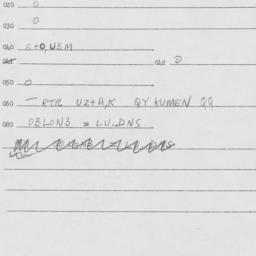 020 0
030 0
040 S+O,UEM
045 062 0
050 0
060 — RTE UZ+A,K QY KUMEN QQ
080 OBLONB = LU.DNS